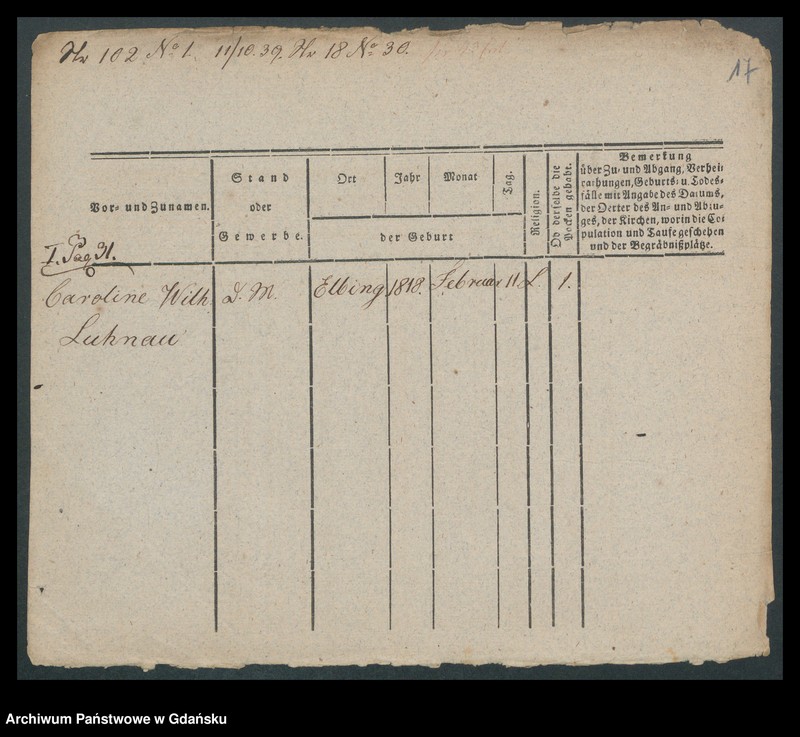 Nr 102 No 1. 11/10.39. Nr 18 No 30.
17
Vor- und Zunamen.
Stand
oder
Gewerbe.
Ort
Jahr
Monat
Tag.
der Geburt
Religion.
Ob derselbe die
Pocken gehabt.
Bemerkung
über Zu- und Abgang, Verhei
rathungen, Geburts- u. Todes-
fälle mit Angabe des Datums,
der Oerter des An- und Abzu-
ges, der Kirchen, worin die Co
pulation und Taufe geschehen
und der Begräbnißplätze.
I. Pag 31.
Caroline Wilh. D. M. Elbing 1818. Februar 11. L. 1.
Luhnau
Archiwum Państwowe w Gdańsku